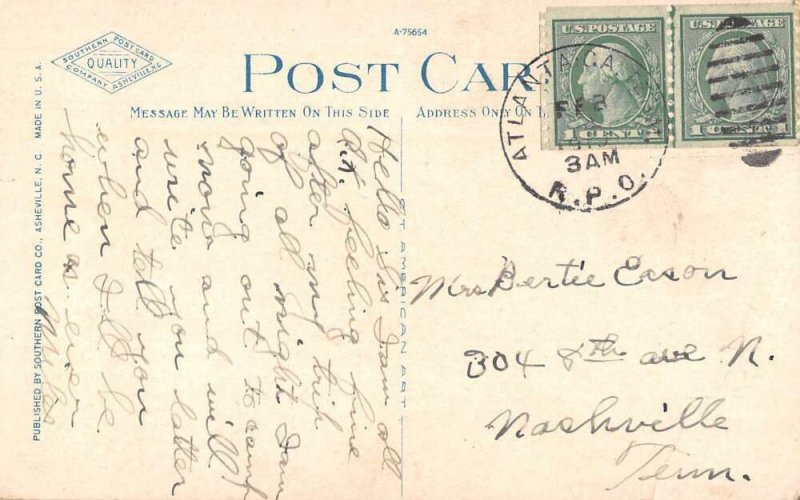 A-75654
SOUTHERN POST CARD
QUALITY
COMPANY ASHEVILLE
POST CAR
MESSAGE MAY BE WRITTEN ON THIS SIDE
ADDRESS ONLY ON
U.S. POSTAGE
1 CENT 1
U.S. POSTAGE
1 CENT 1
ATLANTA GA
FEB
3AM
R.P.O.
Hello Sis I am all
O.K. feeling fine
after my trip
of all night I am
going out to camp
now and will
write you latter
and tell you
when I ll be
home as ever
Mrs Bertie Eason
304 8th ave N.
Nashville
Tenn.
AMERICAN ART
PUBLISHED BY SOUTHERN POST CARD CO., ASHEVILLE, N. C. MADE IN U. S. A.